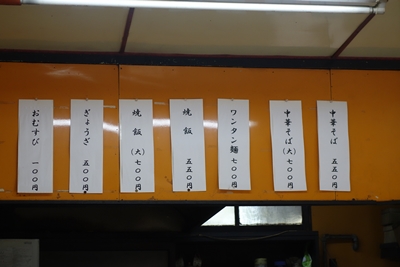 中華そば 五五〇円
中華そば(大) 七〇〇円
ワンタン麺 七〇〇円
焼飯 五五〇円
焼飯(大) 七〇〇円
ぎょうざ 五〇〇円
おむすび 一〇〇円